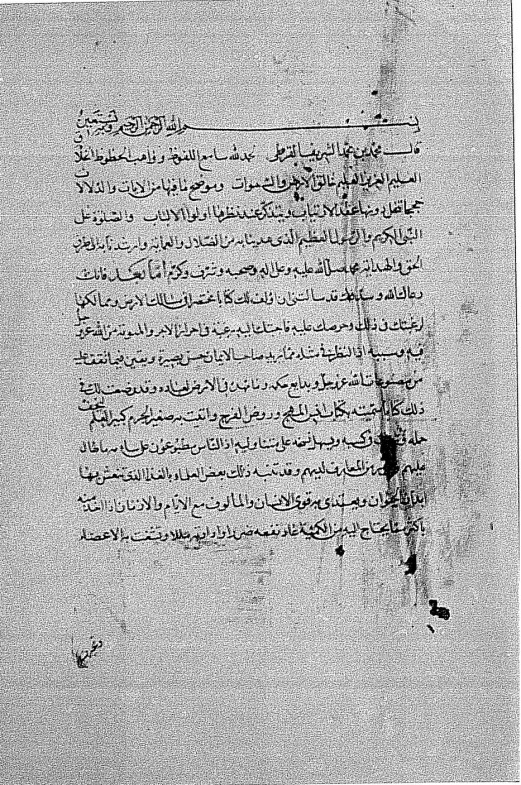 بسم الله الرحمن الرحيم وبه نستعين
قال محمد بن محمد الشريف القرطبي نحمد لله سامع اللفوظ وواهب الحظوظ الخلاق
العليم العزيز العليم خالق الارض والسموات وموضح ما فيها من الايات والدلالات
حججا تحل ومنها عقد الارتياب ويتذكر عند نظرها اولوا الالباب والصلوة على
النبي الكريم والرسول العظيم الذي هدينا به من الضلال والعماية وارشدنا به الى طرق
الحق والهداية محمد صلى الله عليه وعلى اله وصحبه وشرف وكرم اما بعد فانك
رعاك الله وسددك قد سالتني ان اولف لك كتابا مختصرا في مسالك الارض وممالكها
لرغبتك في ذلك وحرصك عليه فاجبتك اليه رغبة في احراز الاجر والمثوبة من الله عز وجل
فيه وبسببه اذ النظر في مثله مما يزيد صاحب الايمان حسن بصيرة ويقين فيما تقف عليه
من مصنوعات الله عز وجل وبدايع حكمه في الارض لعباده وقد وضعت لك في
ذلك كتابا سميته بكتاب انس المهج وروض الفرج واتيت به صغير الجرم كبير العلم ليخف
حمله في وكمه ويسهل نسخه على متناوليه اذ الناس مطبوعون على ما طال
عليهم من المعارف لديهم وقد تنبه ذلك بعض العلماء بالغذا الذي تعيش به
ابدان الحيوان ويغتذى به قوى الانسان والمالوف مع الايام والازمان اذا اخذ منه
باكثر مما يحتاج اليه من الكمية عاد نفعه ضررا وارائه مللا وتشتت به الاعضاء